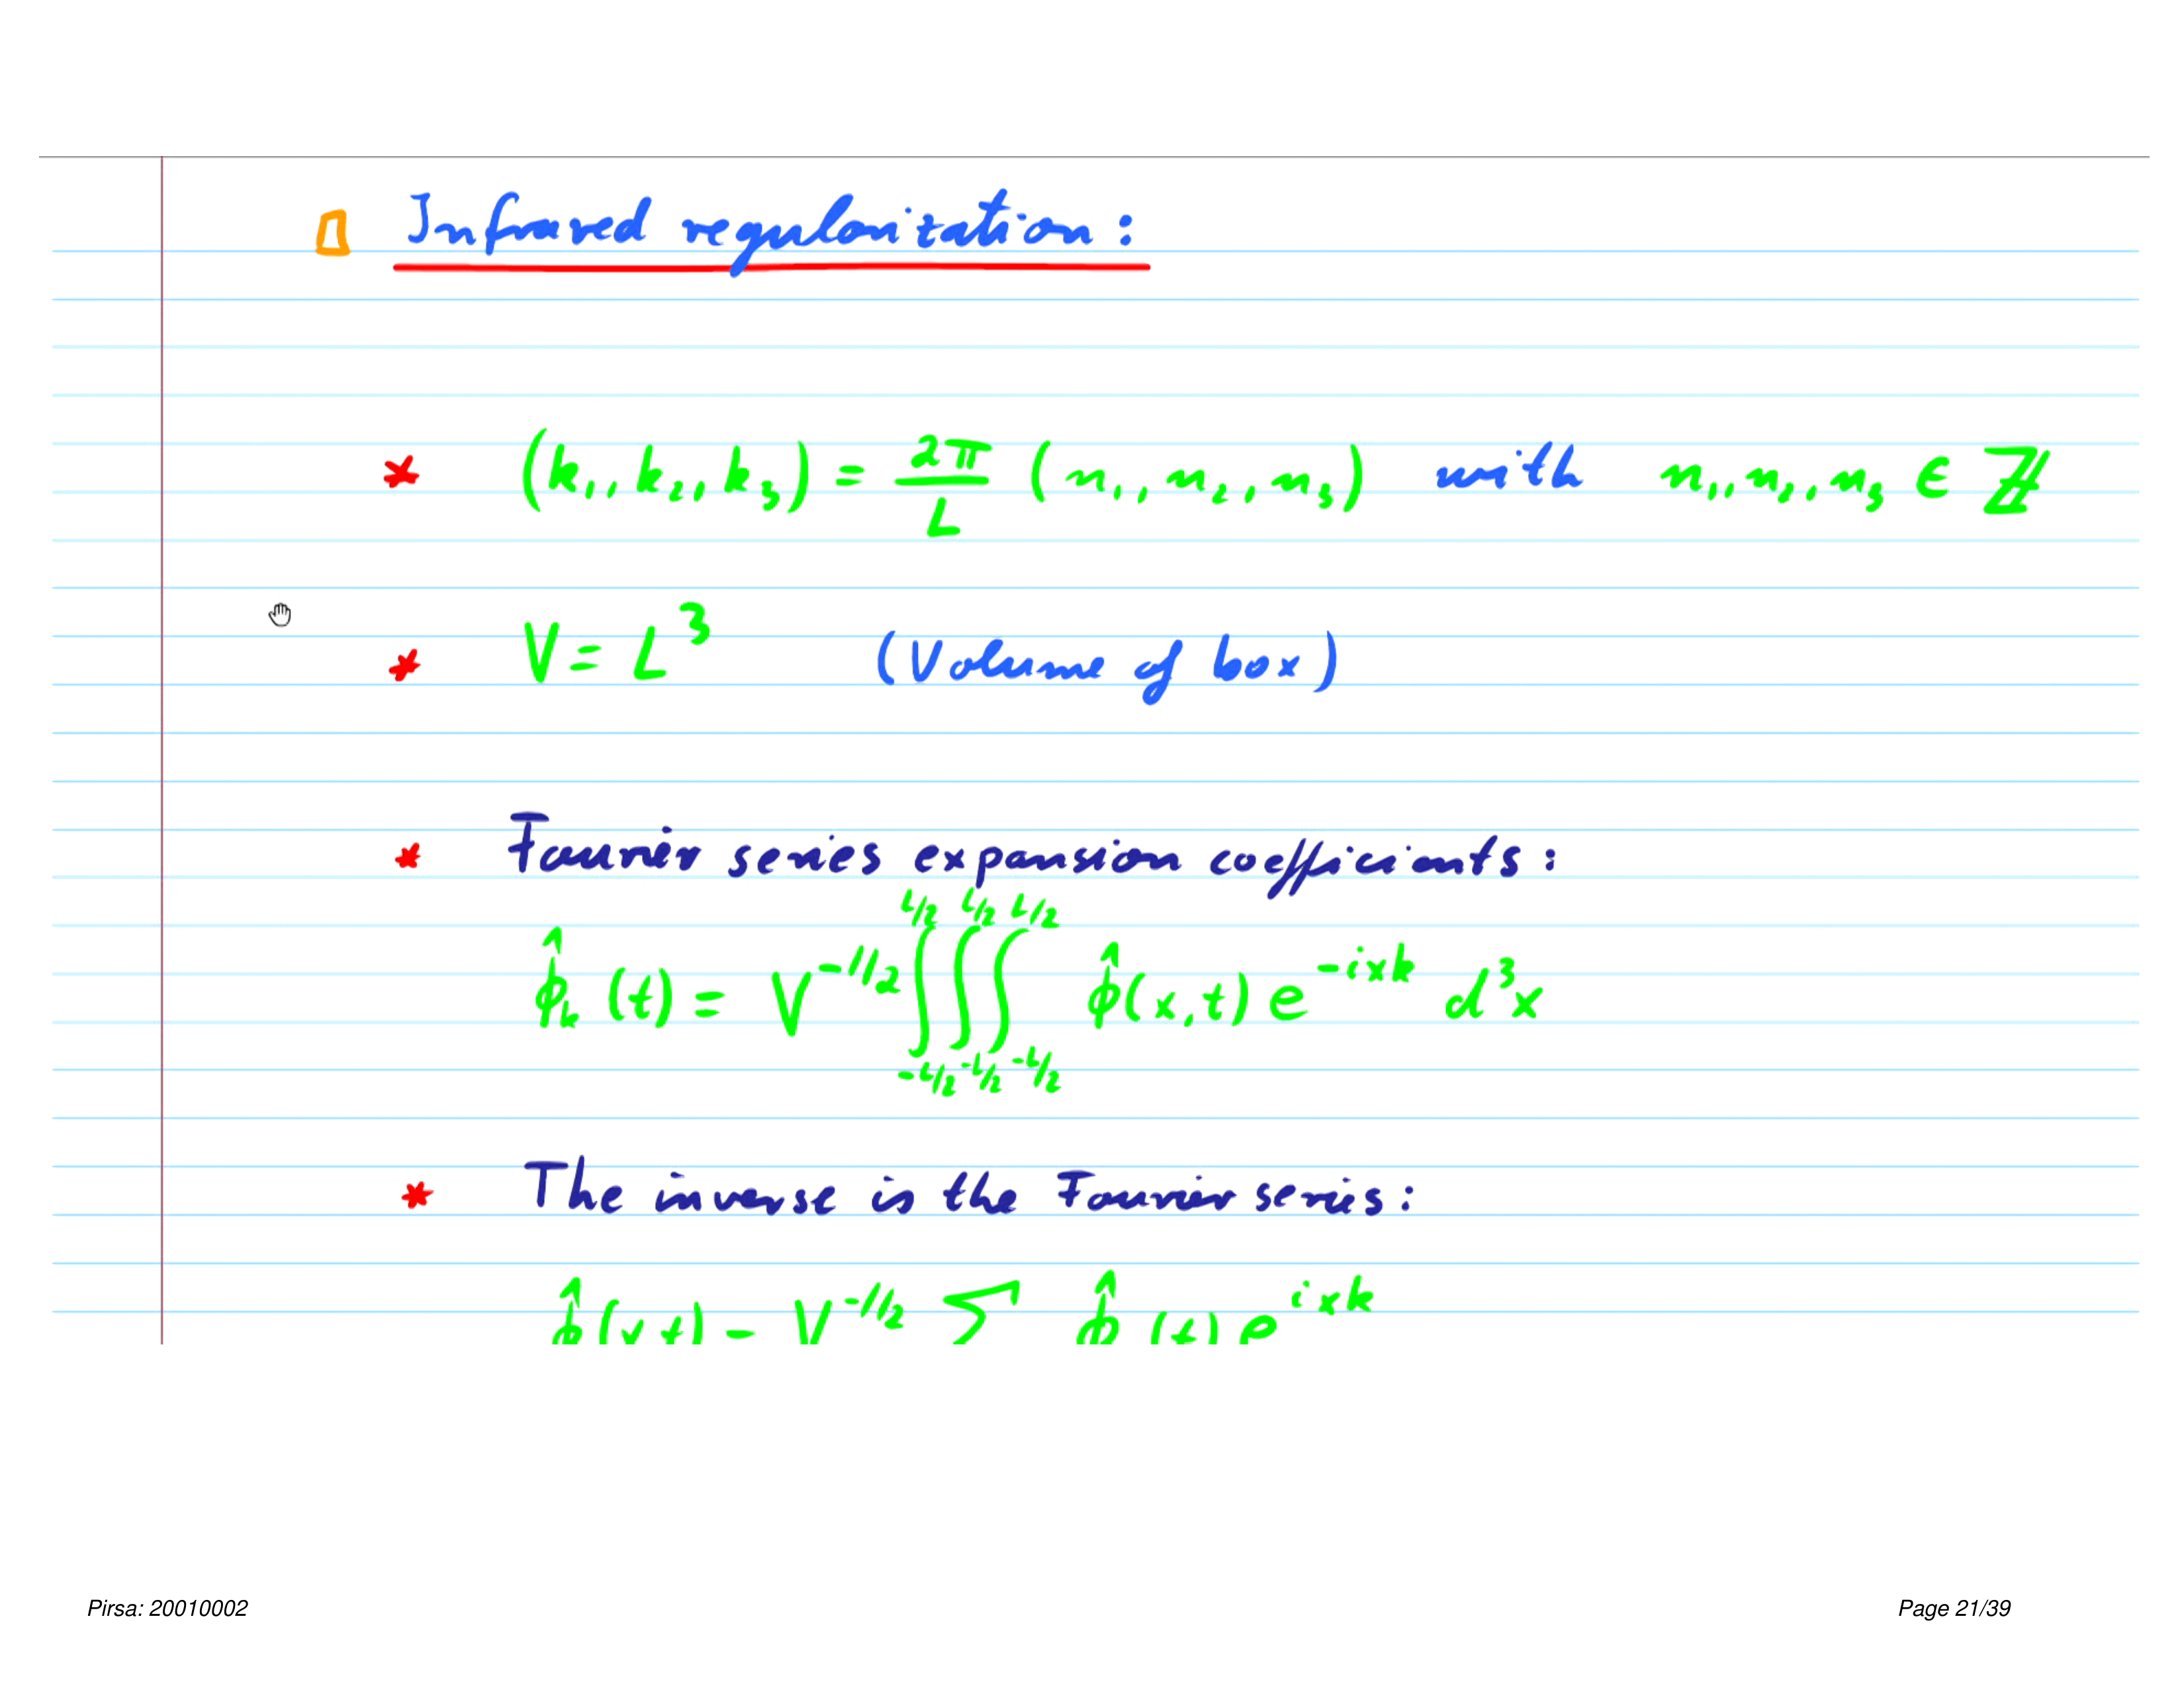 Infrared regularization:
* (k₁, k₂, k₃) = 2π/L (n₁, n₂, n₃) with n₁, n₂, n₃ ∈ ℤ
* V = L³ (Volume of box)
* Fourier series expansion coefficients:
φ̂ₖ(t) = V^(-1/2) ∫_{-L/2}^{L/2} ∫_{-L/2}^{L/2} ∫_{-L/2}^{L/2} φ̂(x,t) e^(-ixk) d³x
* The inverse is the Fourier series:
φ̂(x,t) = V^(-1/2) Σ φ̂ (t) e^(ixk)
Pirsa: 20010002
Page 21/39